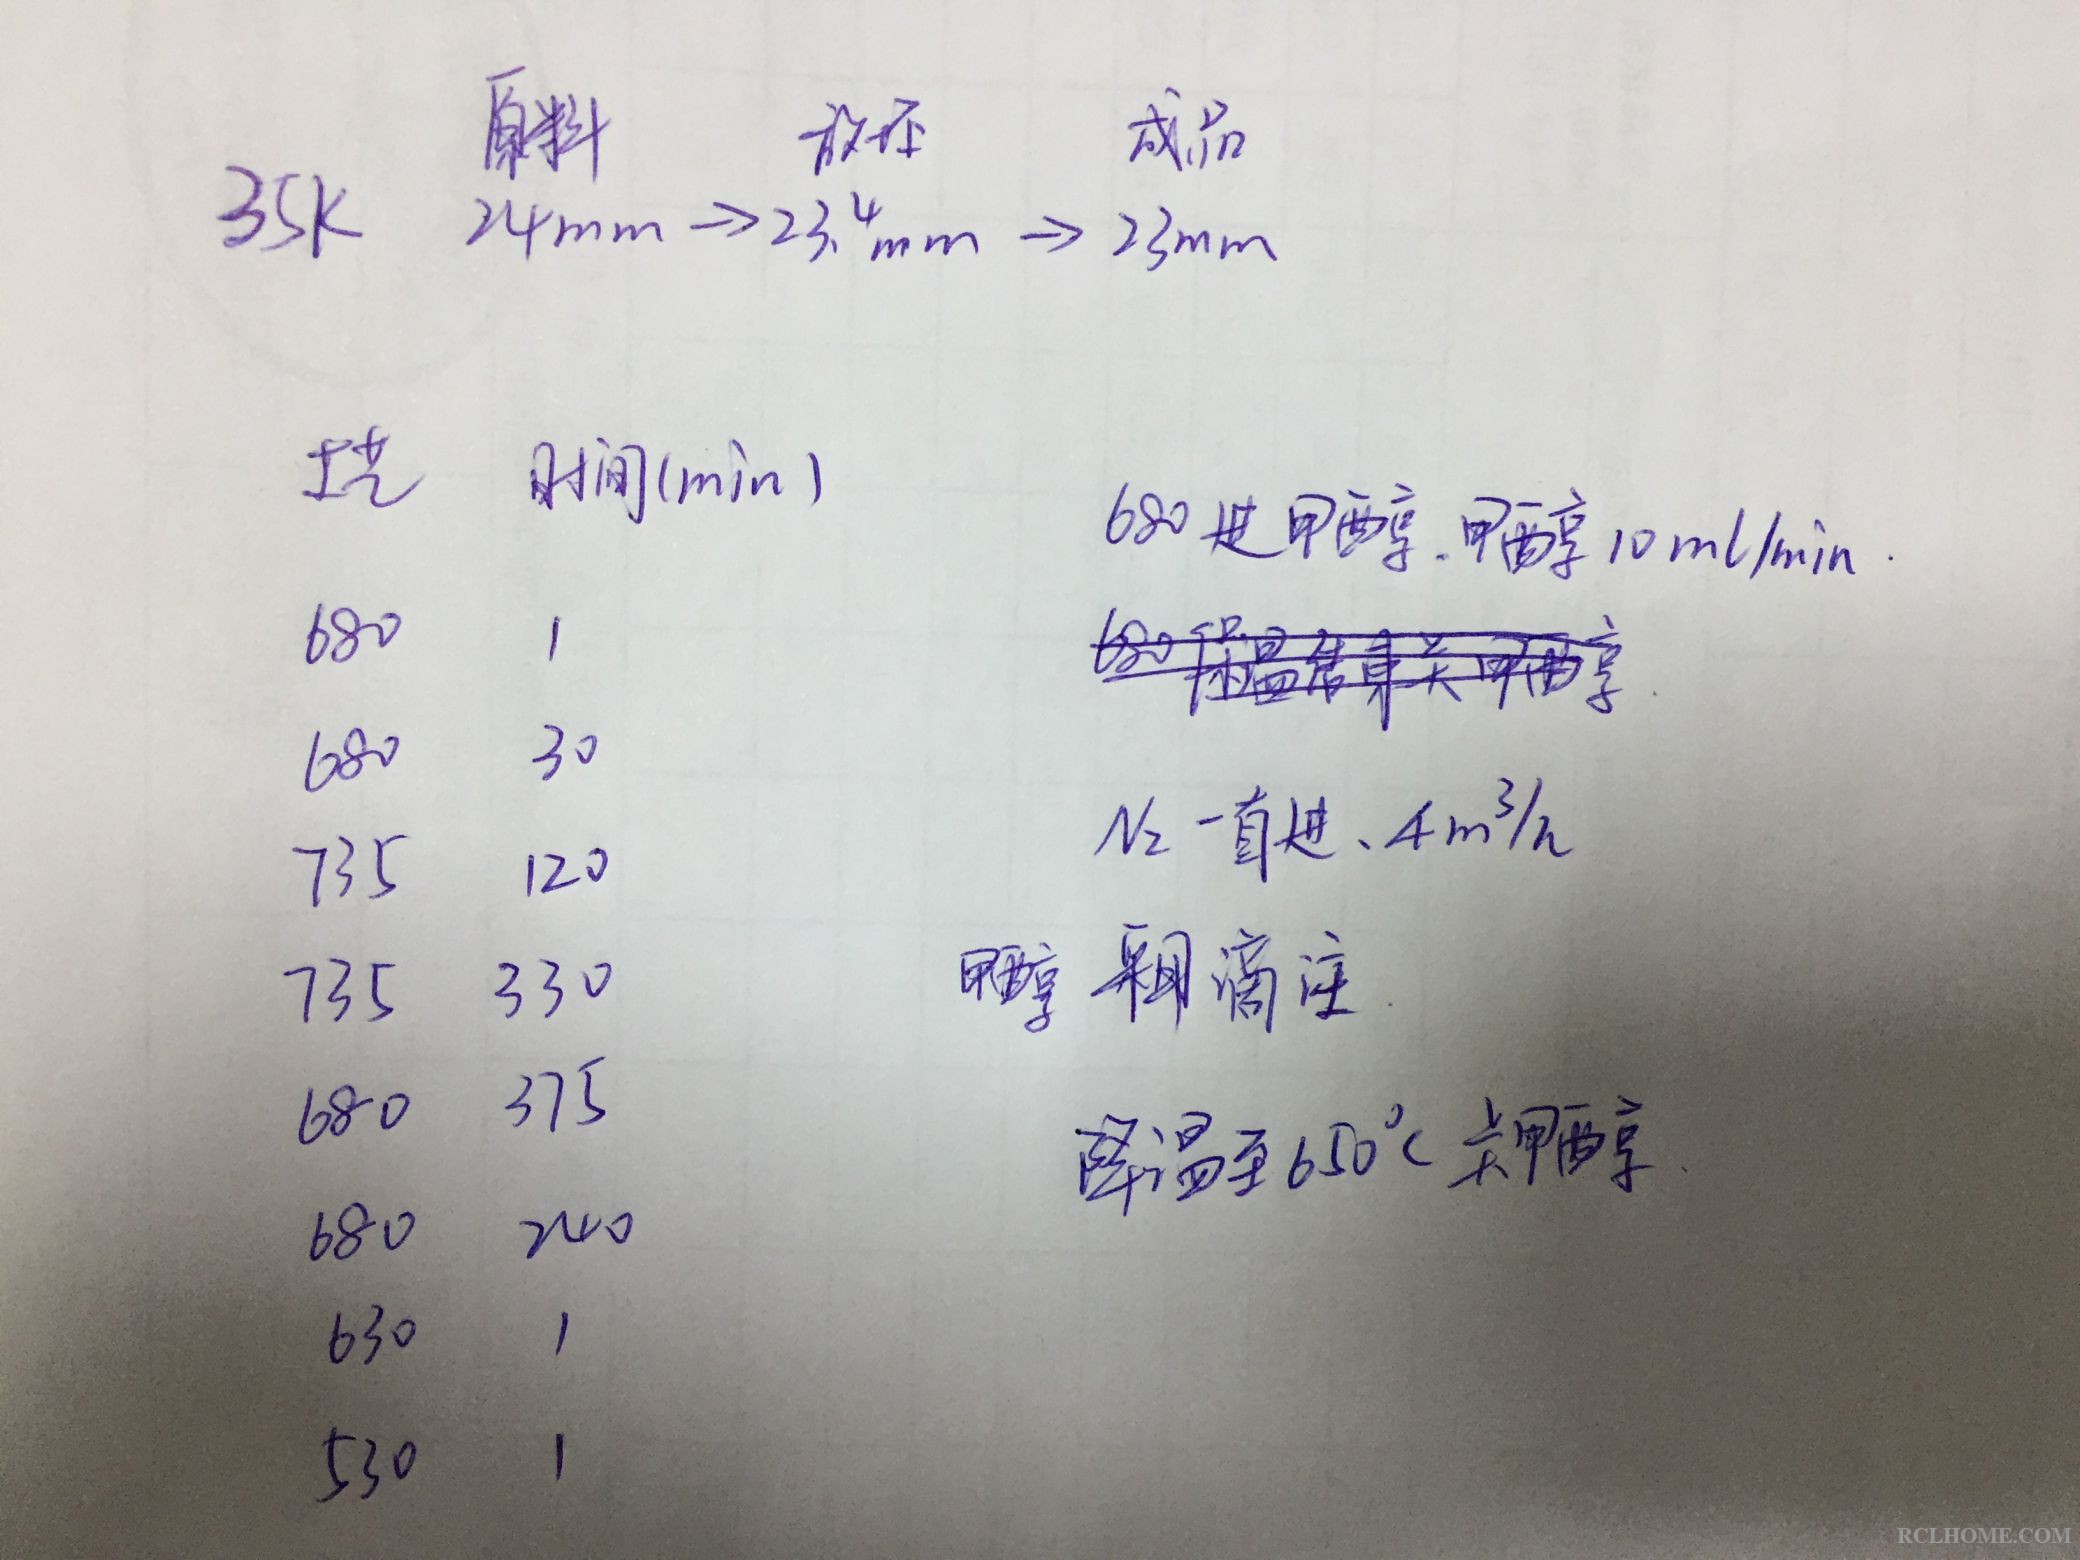 原料 放坯 成品
35K 24mm → 23.4mm → 23mm
工艺 时间(min)
680 1
680 30
735 120
735 330
680 375
680 240
630 1
530 1
680进甲醇、甲醇10ml/min.
680保温结束关甲醇.
N2一直进、4m³/h
甲醇 采用滴注.
降温至650℃关甲醇.
RCLHOME.COM